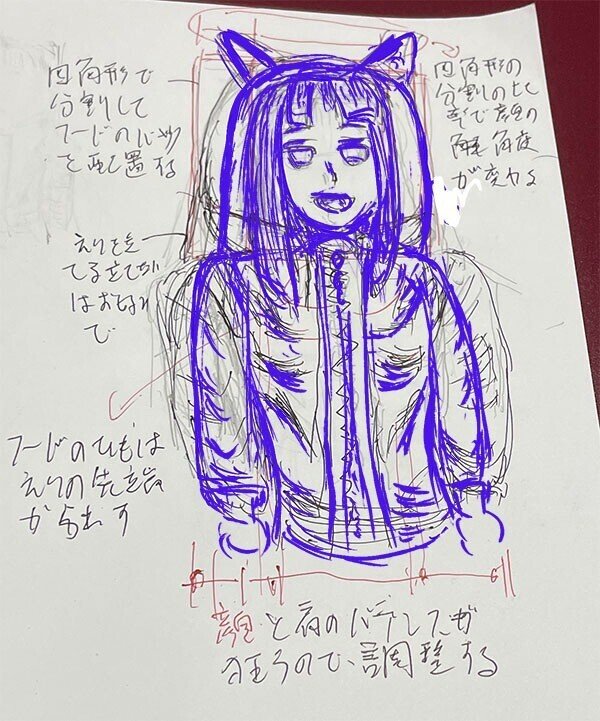 四角形で
分割して
フードのパーツ
を配置する
四角形の
分割の比
で顔の
角度
が変わる
えりを立
てる
は
で
フードのひもは
えりの先端
から出す
顔と肩のバランスが
狂うので、調整する